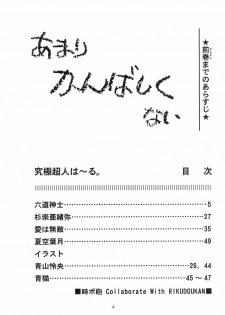 ★前巻までのあらすじ★
あまり
かんばしく
ない
究極超人は～る。 目 次
六道神士 5
杉崇亜緒弥 27
愛は無敵 35
夏空葉月 49
イラスト
青山怜央 26、44
青猫 45 ～ 47
■時ボ砲 Collaborate With RIKUDOUKAN■
4